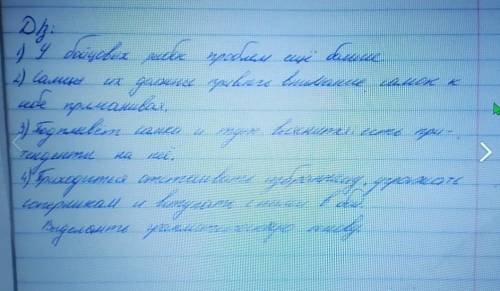 Д/з:
1) У бойцовых рыбок проблем ещё больше
2) Самцы их должны привлечь внимание самок к
себе приманивая.
3) Подплывёт самка и тут выяснится: есть пре-
тенденты на неё.
4) Приходится отстаивать избранницу, угрожать
соперникам и вступать с ними в бой.
Выделить грамматическую основу